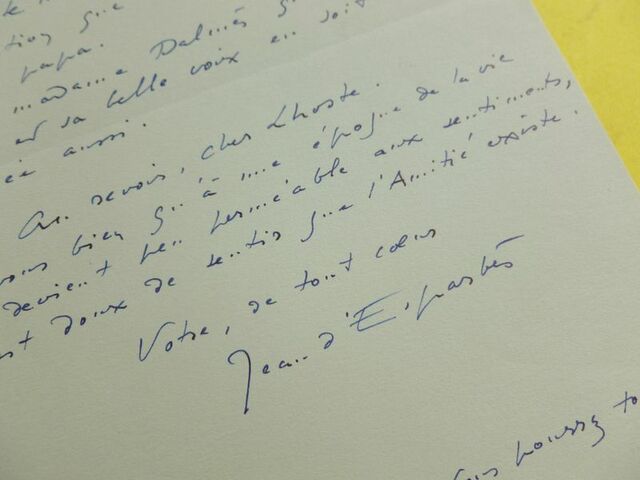 papa.
madame Dalmès
et sa belle voix en soit
aussi.
Au revoir, cher Lhoste.
bien qu'à une époque de la vie
devient peu perméable aux sentiments,
doux de sentir que l'Amitié existe.
Votre, de tout cœur
Jean d'Esparbès
poussez